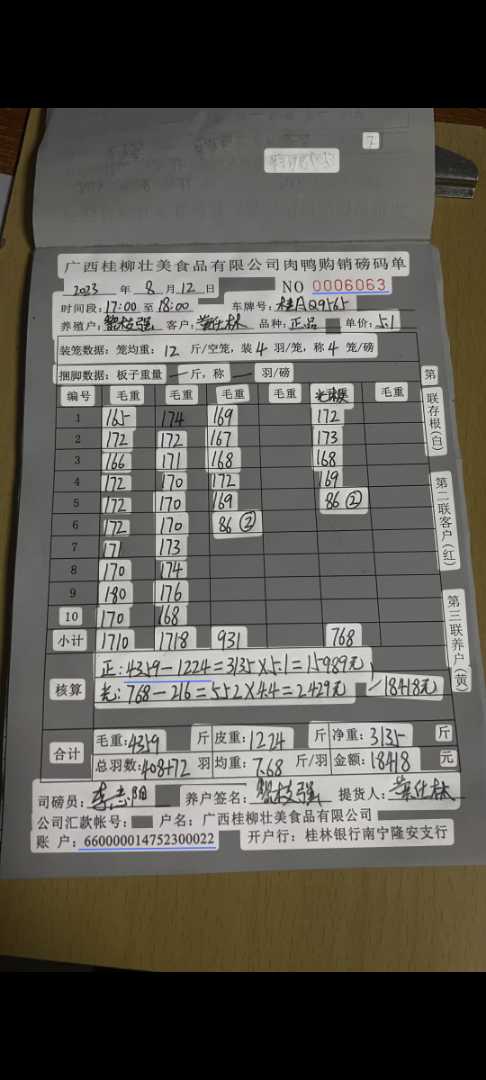 7
广西桂柳壮美食品有限公司肉鸭购销磅码单
2023 年 8 月 12 日 NO 0006063
时间段: 17:00 至 18:00 车牌号: 桂AQ9565
养殖户: 客户: 品种: 正品 单价: 5.1
装笼数据: 笼均重: 12 斤/空笼, 装 4 羽/笼, 称 4 笼/磅
捆脚数据: 板子重量 一 斤, 称 一 羽/磅
编号 毛重 毛重 毛重 毛重 毛重
1 165 174 169 172
2 172 172 167 173
3 166 171 168 168
4 172 170 172 169
5 172 170 169 86 ②
6 172 170 86 ②
7 171 173
8 170 174
9 180 176
10 170 168
小计 1710 1718 931 768
核算
正: 4359-1224=3135×5.1=15989元
光: 768-216=552×4.4=2429元 /18418元
合计
毛重: 4359 斤 皮重: 1224 斤 净重: 3135 斤
总羽数: 408+72 羽 均重: 7.68 斤/羽 金额: 18418 元
司磅员: 李志阳 养户签名: 提货人:
公司汇款帐号: 户名: 广西桂柳壮美食品有限公司
账 户: 660000014752300022 开户行: 桂林银行南宁隆安支行
第一联存根(白)
第二联客户(红)
第三联养户(黄)